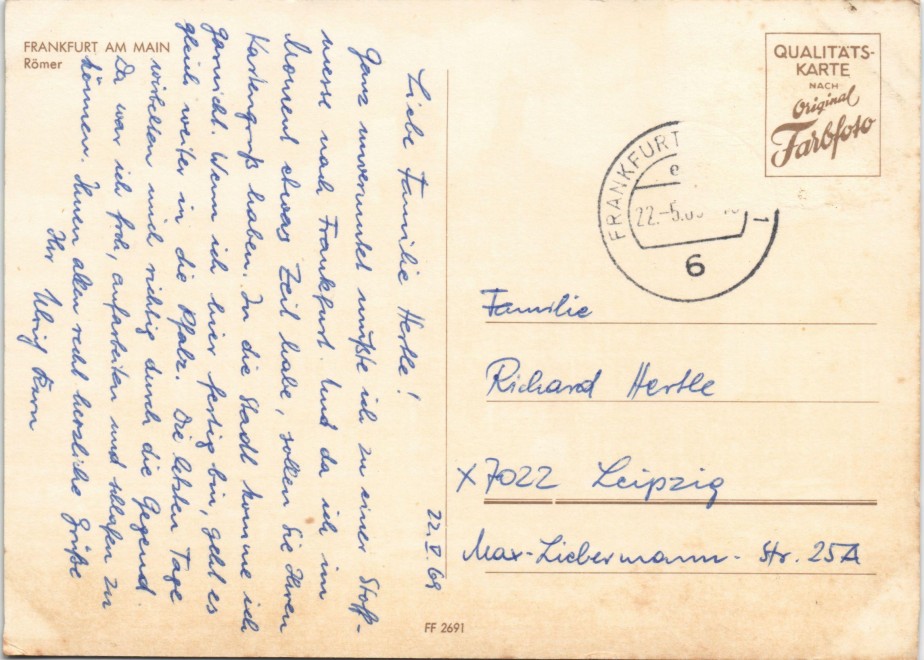 FRANKFURT AM MAIN
Römer
22.V.69
Liebe Familie Hertle!
Ganz unvermutet mußte ich zu einer Stoff-
messe nach Frankfurt. Und da ich im
Moment etwas Zeit habe, sollen Sie Ihren
Kartengruß haben. In die Stadt komme ich
garnicht. Wenn ich hier fertig bin, geht es
gleich weiter in die Pfalz. Die letzten Tage
wirbelten mich richtig durch die Gegend.
Da war ich froh, aufarbeiten und schlafen zu
können. Ihnen allen recht herzliche Grüße
Ihr Ulrich
QUALITÄTS-
KARTE
NACH
Original
Farbfoto
FRANKFURT
e
22.-5.
6
Familie
Richard Hertle
X7022 Leipzig
Max-Liebermann-Str. 25A
FF 2691